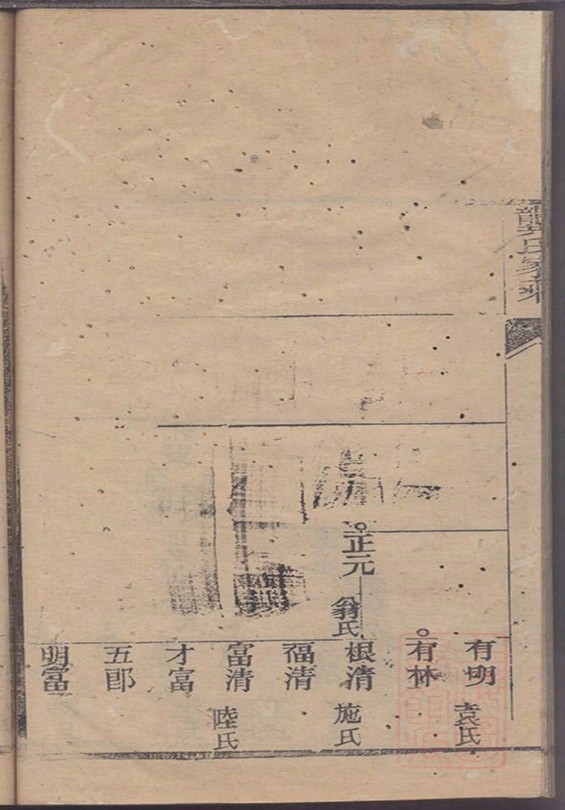 氏家乘
正元
翁氏
有明
袁氏
有林
根清
施氏
福清
富清
陸氏
才富
五郎
明富